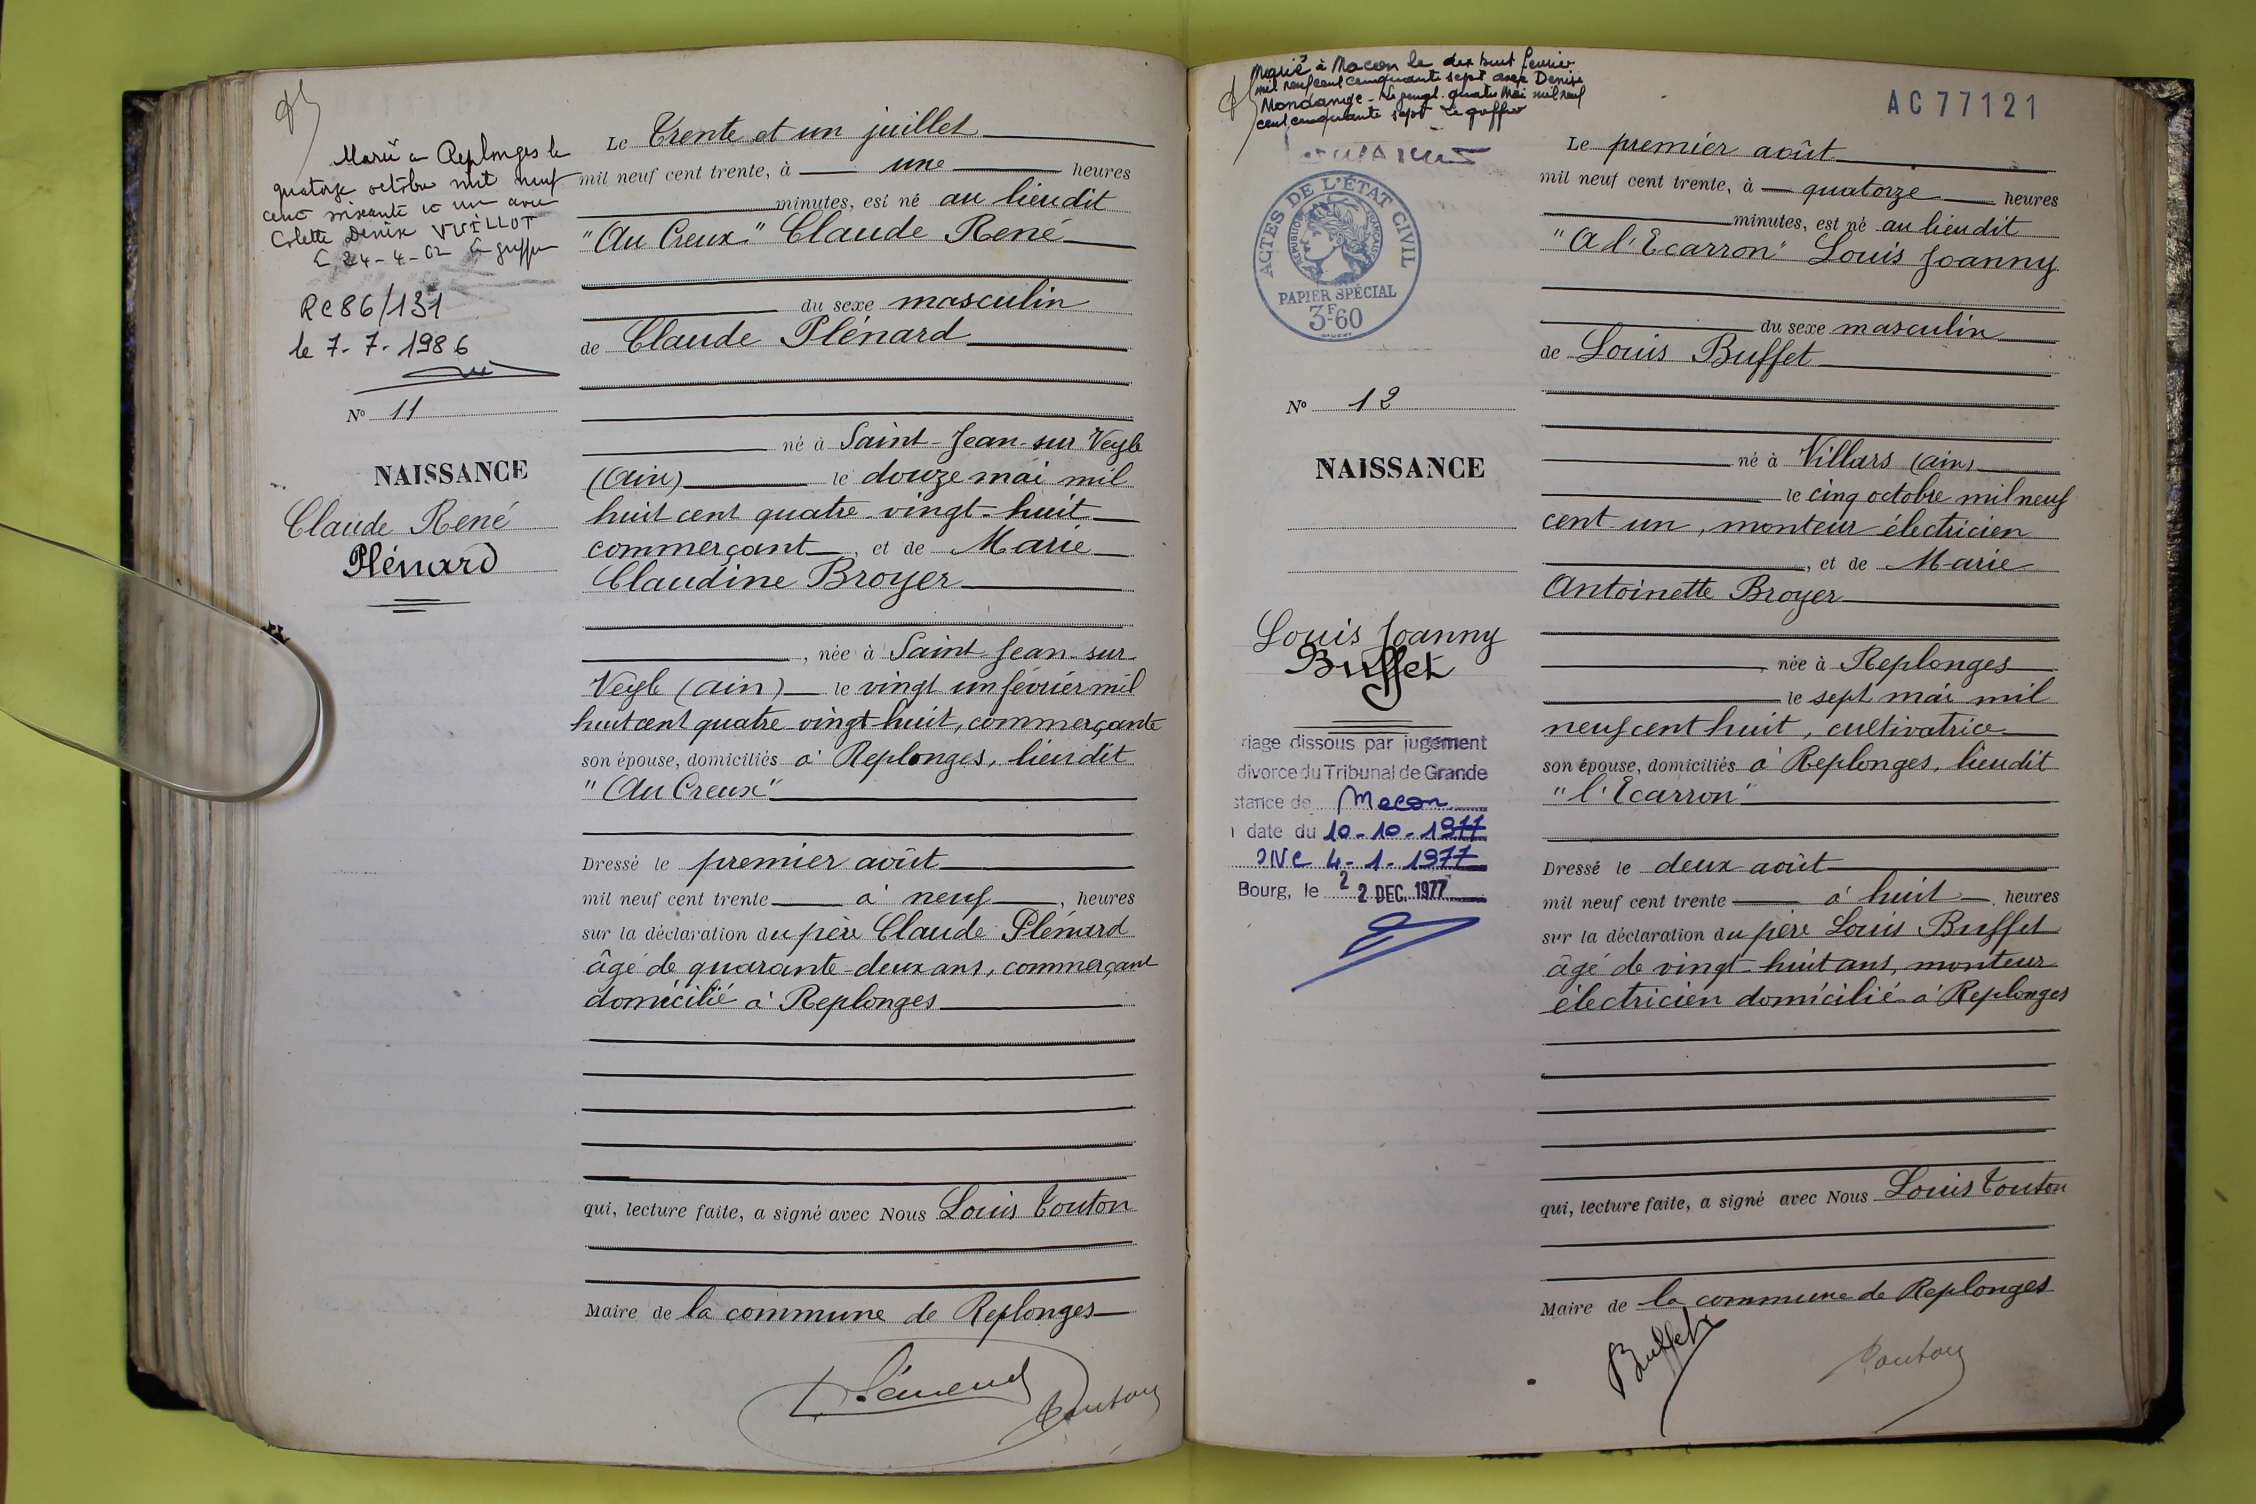 Marié à Replonges le
quatorze octobre mil neuf
cent soixante et un avec
Colette Denise VUILLOT
Le 24-4-62 Le greffier
RC 86/131
le 7-7-1986
N° 11
NAISSANCE
Claude René
Plénard
Le Trente et un juillet
mil neuf cent trente, à une heures
minutes, est né au lieudit
"Au Creux" Claude René
du sexe masculin
de Claude Plénard
né à Saint-Jean-sur Veyle
(Ain) le douze mai mil
huit cent quatre-vingt-huit
commerçant, et de Marie
Claudine Broyer
, née à Saint Jean-sur
Veyle (ain) le vingt un février mil
huit cent quatre vingt huit, commerçante
son épouse, domiciliés à Replonges, lieudit
"Au Creux"
Dressé le premier août
mil neuf cent trente à neuf, heures
sur la déclaration du père Claude Plénard
âgé de quarante-deux ans, commerçant
domicilié à Replonges
qui, lecture faite, a signé avec Nous Louis Touton
Maire de la commune de Replonges
Plénard
Touton
Marié à Macon le dix huit février
mil neuf cent cinquante sept avec Denise
Mondange - Le vingt quatre Mai mil neuf
cent cinquante sept Le greffier
ACTES DE L'ÉTAT CIVIL
RÉPUBLIQUE FRANÇAISE
PAPIER SPÉCIAL
3F60
N° 12
NAISSANCE
Louis Joanny
Buffet
riage dissous par jugement
divorce du Tribunal de Grande
stance de Macon
date du 10-10-1977
ONC 4-1-1977
Bourg, le 2 2 DEC. 1977
AC 77121
Le premier août
mil neuf cent trente, à quatorze heures
minutes, est né au lieudit
"A l'Ecarron" Louis Joanny
du sexe masculin
de Louis Buffet
né à Villars (ain)
le cinq octobre mil neuf
cent un, monteur électricien
, et de Marie
Antoinette Broyer
, née à Replonges
le sept mai mil
neuf cent huit, cultivatrice
son épouse, domiciliés à Replonges, lieudit
"l'Ecarron"
Dressé le deux août
mil neuf cent trente à huit, heures
sur la déclaration du père Louis Buffet
âgé de vingt-huit ans, monteur
électricien domicilié à Replonges
qui, lecture faite, a signé avec Nous Louis Touton
Maire de la commune de Replonges
Buffet
Touton